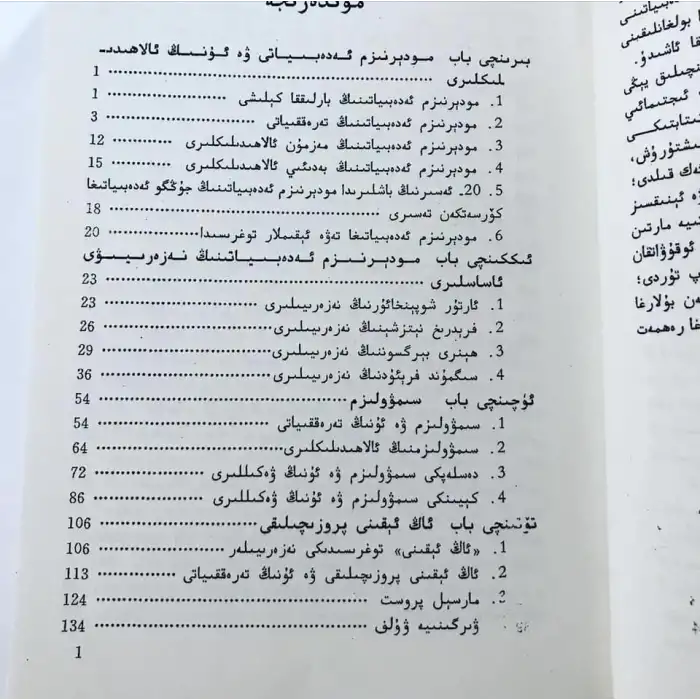 مۇندەرىجە
بىرىنچى باب مودېرنىزم ئەدەبىياتى ۋە ئۇنىڭ ئالاھىدى-
لىكلىرى ················ 1
1. مودېرنىزم ئەدەبىياتىنىڭ بارلىققا كېلىشى ················ 1
2. مودېرنىزم ئەدەبىياتىنىڭ تەرەققىياتى ················ 3
3. مودېرنىزم ئەدەبىياتىنىڭ مەزمۇن ئالاھىدىلىكلىرى ········ 12
4. مودېرنىزم ئەدەبىياتىنىڭ بەدىئىي ئالاھىدىلىكلىرى ········ 15
5. 20- ئەسىرنىڭ باشلىرىدا مودېرنىزم ئەدەبىياتىنىڭ جۇڭگو ئەدەبىياتىغا
كۆرسەتكەن تەسىرى ················ 18
6. مودېرنىزم ئەدەبىياتىغا تەۋە ئېقىملار توغرىسىدا ········ 20
ئىككىنچى باب مودېرنىزم ئەدەبىياتىنىڭ نەزەرىيىۋى
ئاساسلىرى ················ 23
1. ئارتۇر شوپېنخائۇرنىڭ نەزەرىيىلىرى ················ 23
2. فرېدرىخ نېتزشېنىڭ نەزەرىيىلىرى ················ 26
3. ھېنرى بېرگسوننىڭ نەزەرىيىلىرى ················ 29
4. سىگمۇند فرېئۇدنىڭ نەزەرىيىلىرى ················ 36
ئۈچىنچى باب سىمۋولىزم ················ 54
1. سىمۋولىزم ۋە ئۇنىڭ تەرەققىياتى ················ 54
2. سىمۋولىزمنىڭ ئالاھىدىلىكلىرى ················ 64
3. دەسلەپكى سىمۋولىزم ۋە ئۇنىڭ ۋەكىللىرى ················ 72
4. كېيىنكى سىمۋولىزم ۋە ئۇنىڭ ۋەكىللىرى ················ 86
تۆتىنچى باب ئاڭ ئېقىنى پروزىچىلىقى ················ 106
1. «ئاڭ ئېقىنى» توغرىسىدىكى نەزەرىيىلەر ················ 106
2. ئاڭ ئېقىنى پروزىچىلىقى ۋە ئۇنىڭ تەرەققىياتى ················ 113
3. مارسېل پروست ················ 124
ۋىرگىنىيە ۋۇلف ················ 134
1
بولغانلىقىنى
قا ئاشىدۇ.
نچىلىق يېڭى
ە ئىجتىمائىي
ىشتۈرۈش،
ەك قىلدى؛
ە ئېنىقسىز
ىيە مارتىن
ئوقۇۋاتقان
پ تۇردى؛
ەن بۇلارغا
غا رەھمەت